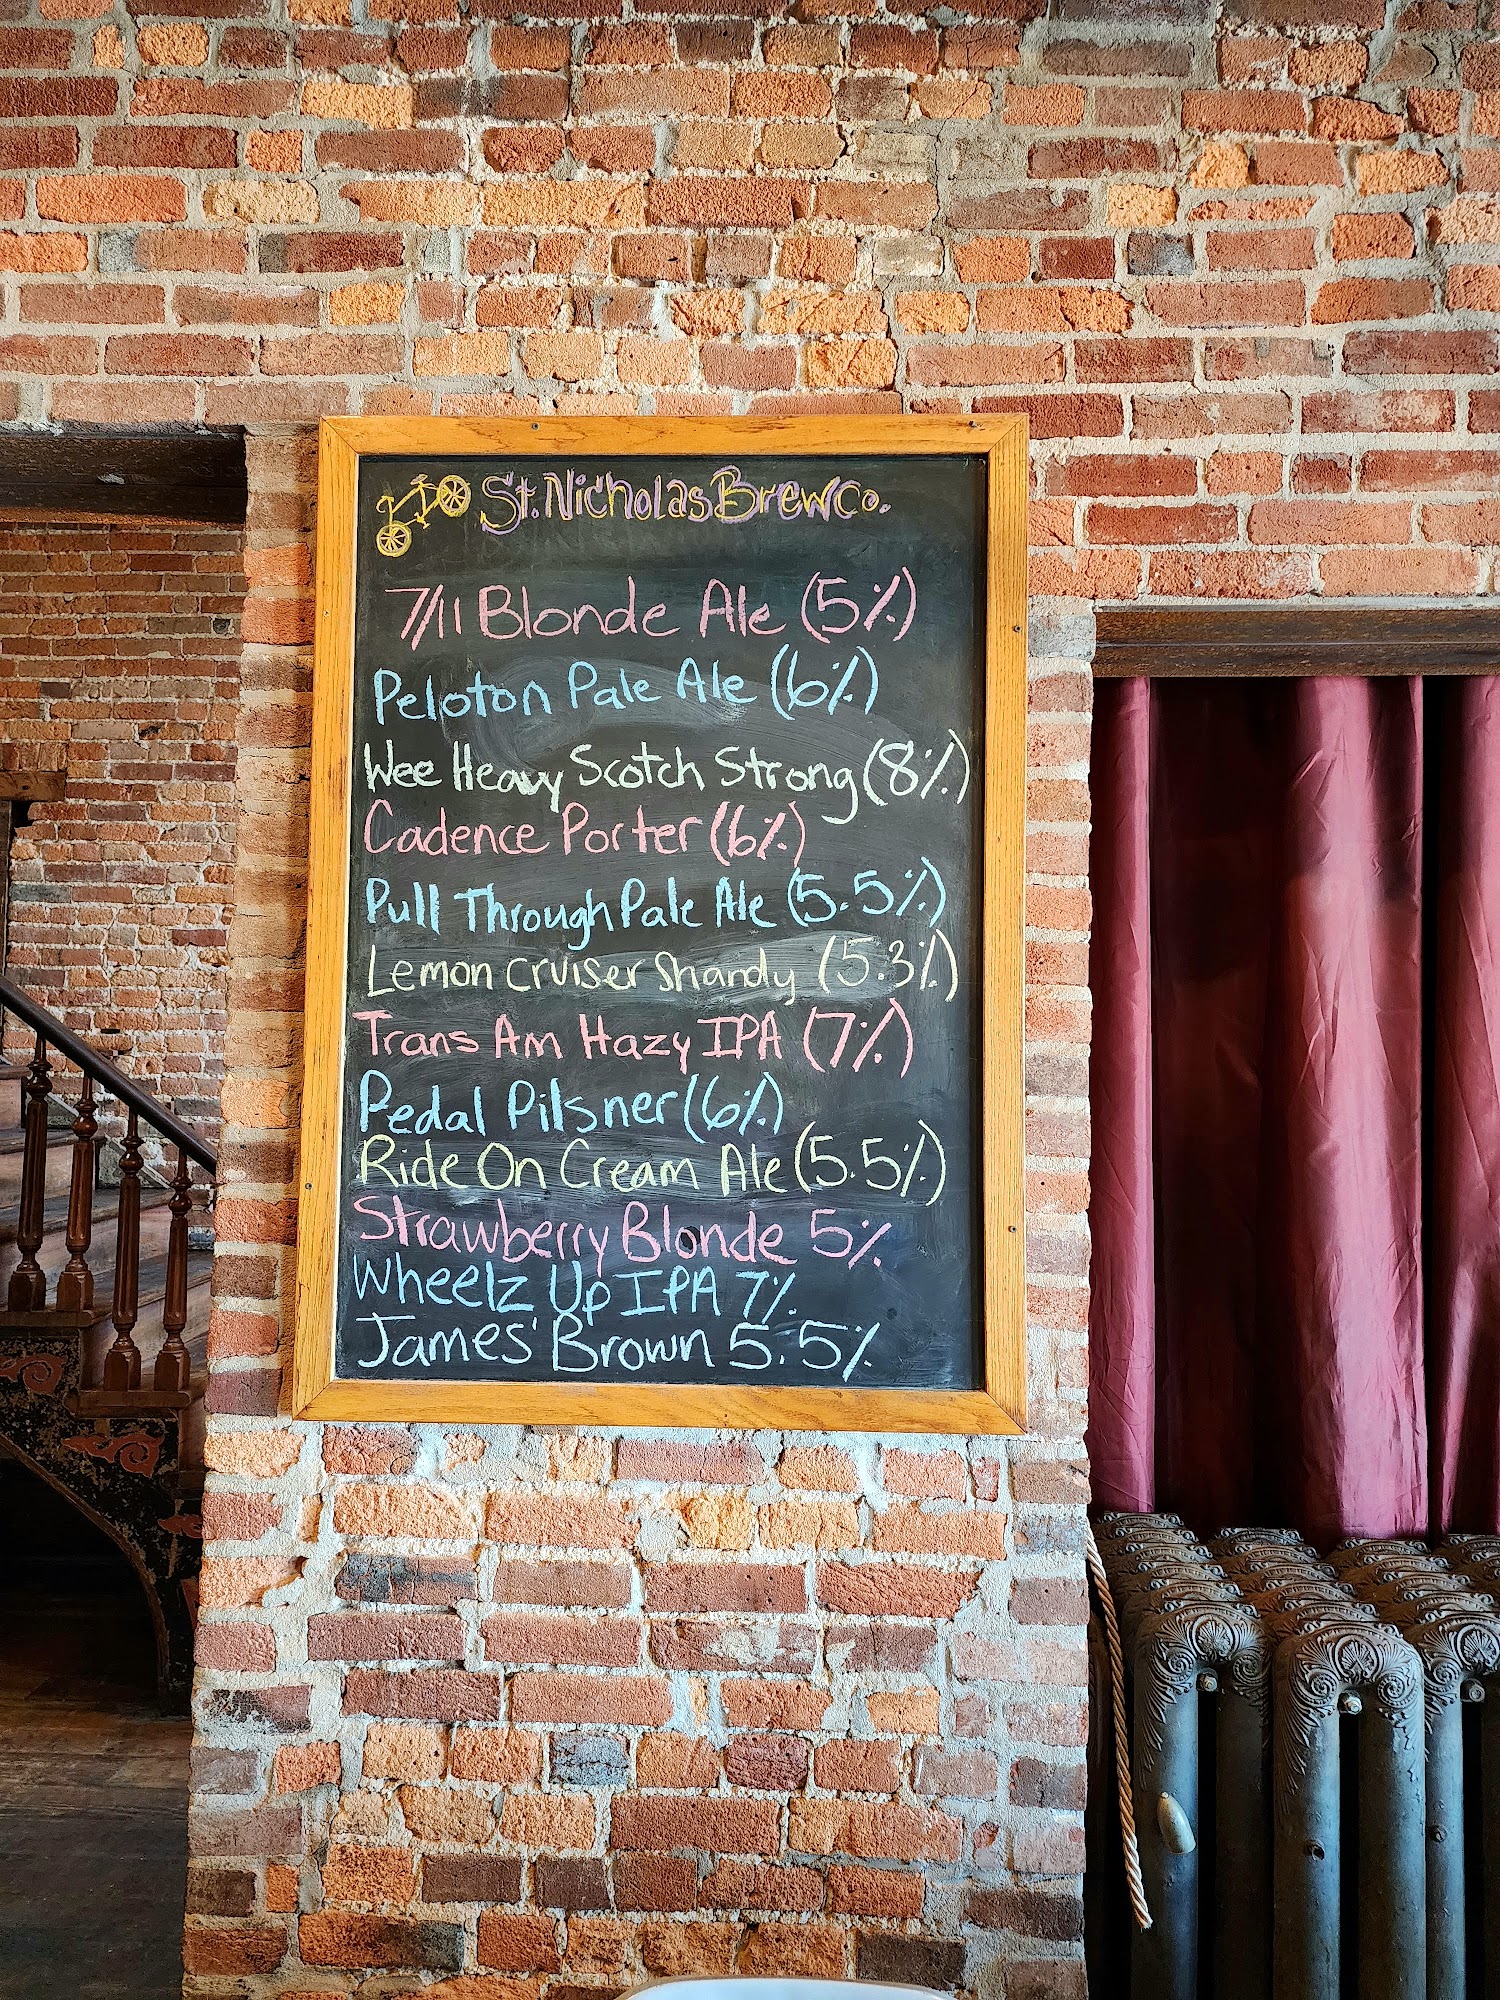 St. Nicholas Brew Co.
7/11 Blonde Ale (5%)
Peloton Pale Ale (6%)
Wee Heavy Scotch Strong (8%)
Cadence Porter (6%)
Pull Through Pale Ale (5.5%)
Lemon Cruiser Shandy (5.3%)
Trans Am Hazy IPA (7%)
Pedal Pilsner (6%)
Ride On Cream Ale (5.5%)
Strawberry Blonde 5%
Wheelz Up IPA 7%
James' Brown 5.5%